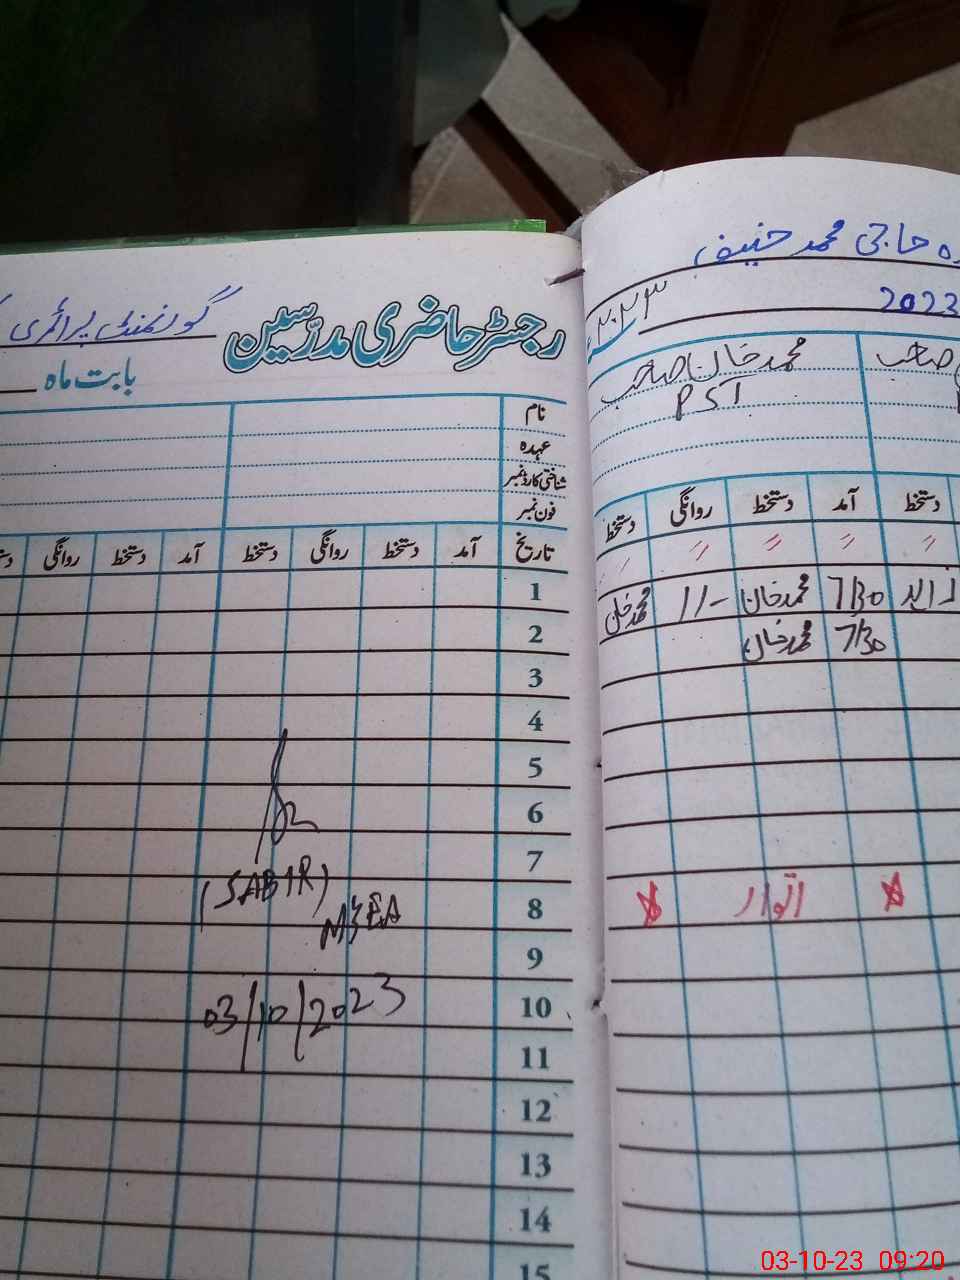 رجسٹر حاضری مدرّسین گورنمنٹ پرائمری
بابت ماہ
نام
عہدہ
شناختی کارڈ نمبر
فون نمبر
تاریخ آمد دستخط روانگی دستخط آمد دستخط روانگی
1
2
3
4
5
6
7
8
9
10
11
12
13
14
15
(SABIR)
MEA
03/10/2023
حاجی محمد حنیف
2023
۲۰۲۳
محمد خان صاحب
PST
دستخط آمد دستخط روانگی دستخط
〃 〃 〃 〃 〃
7/30 محمد خان 11/- محمد خان
7/30 محمد خان
اتوار
03-10-23 09:20